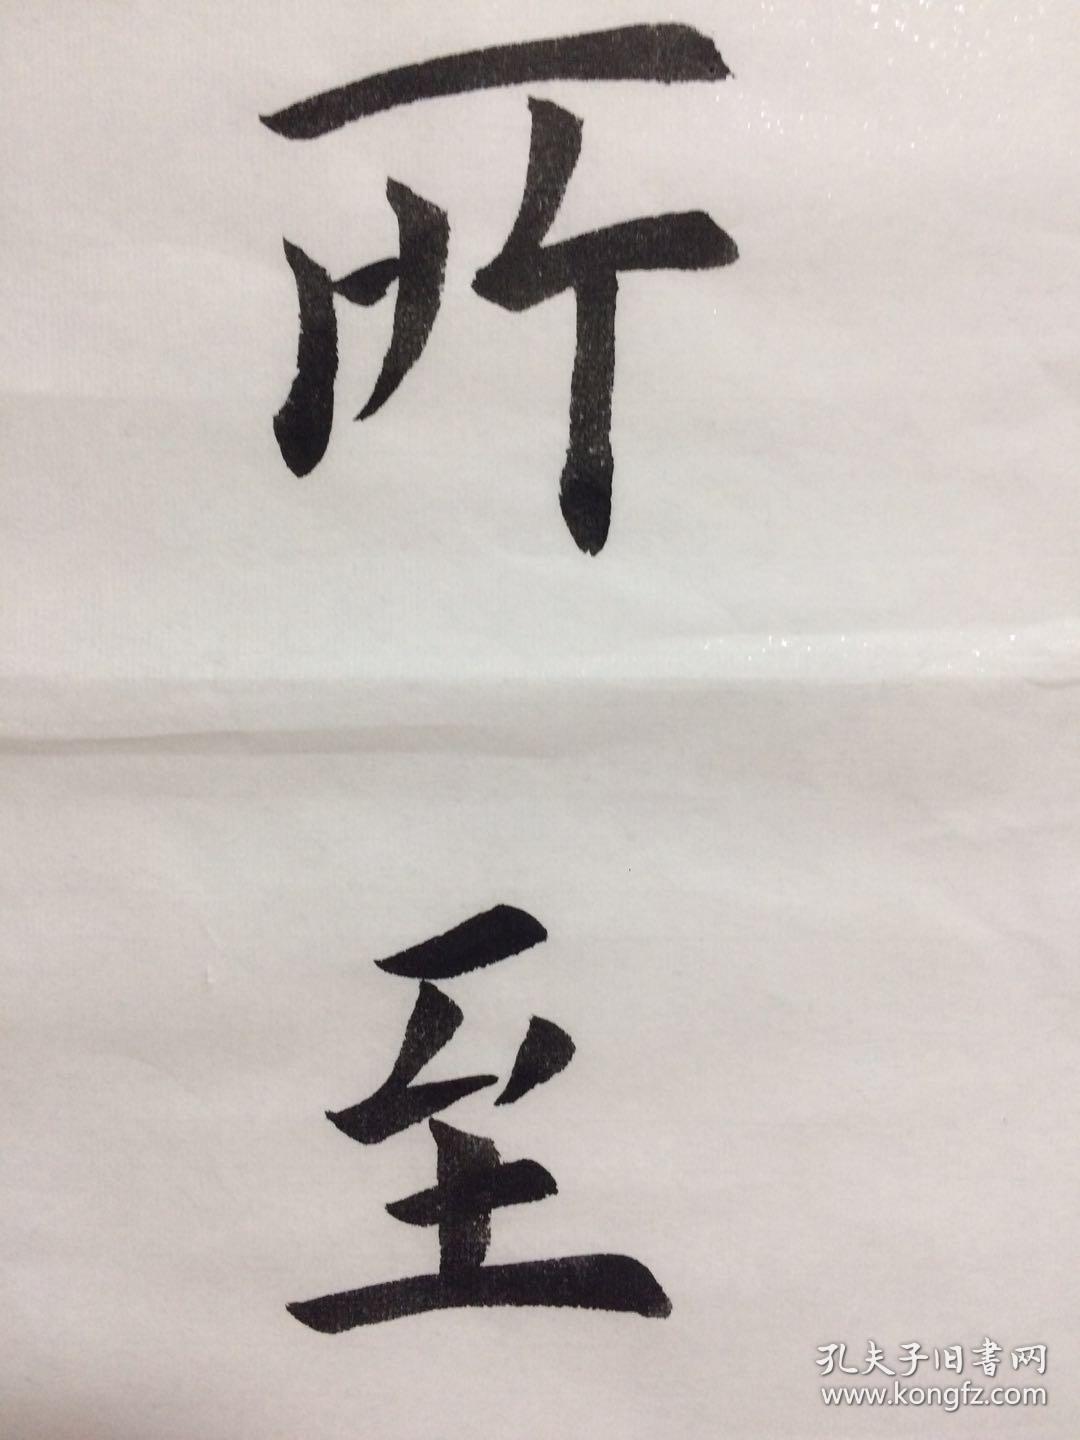 所
至
孔夫子旧書网
www.kongfz.com